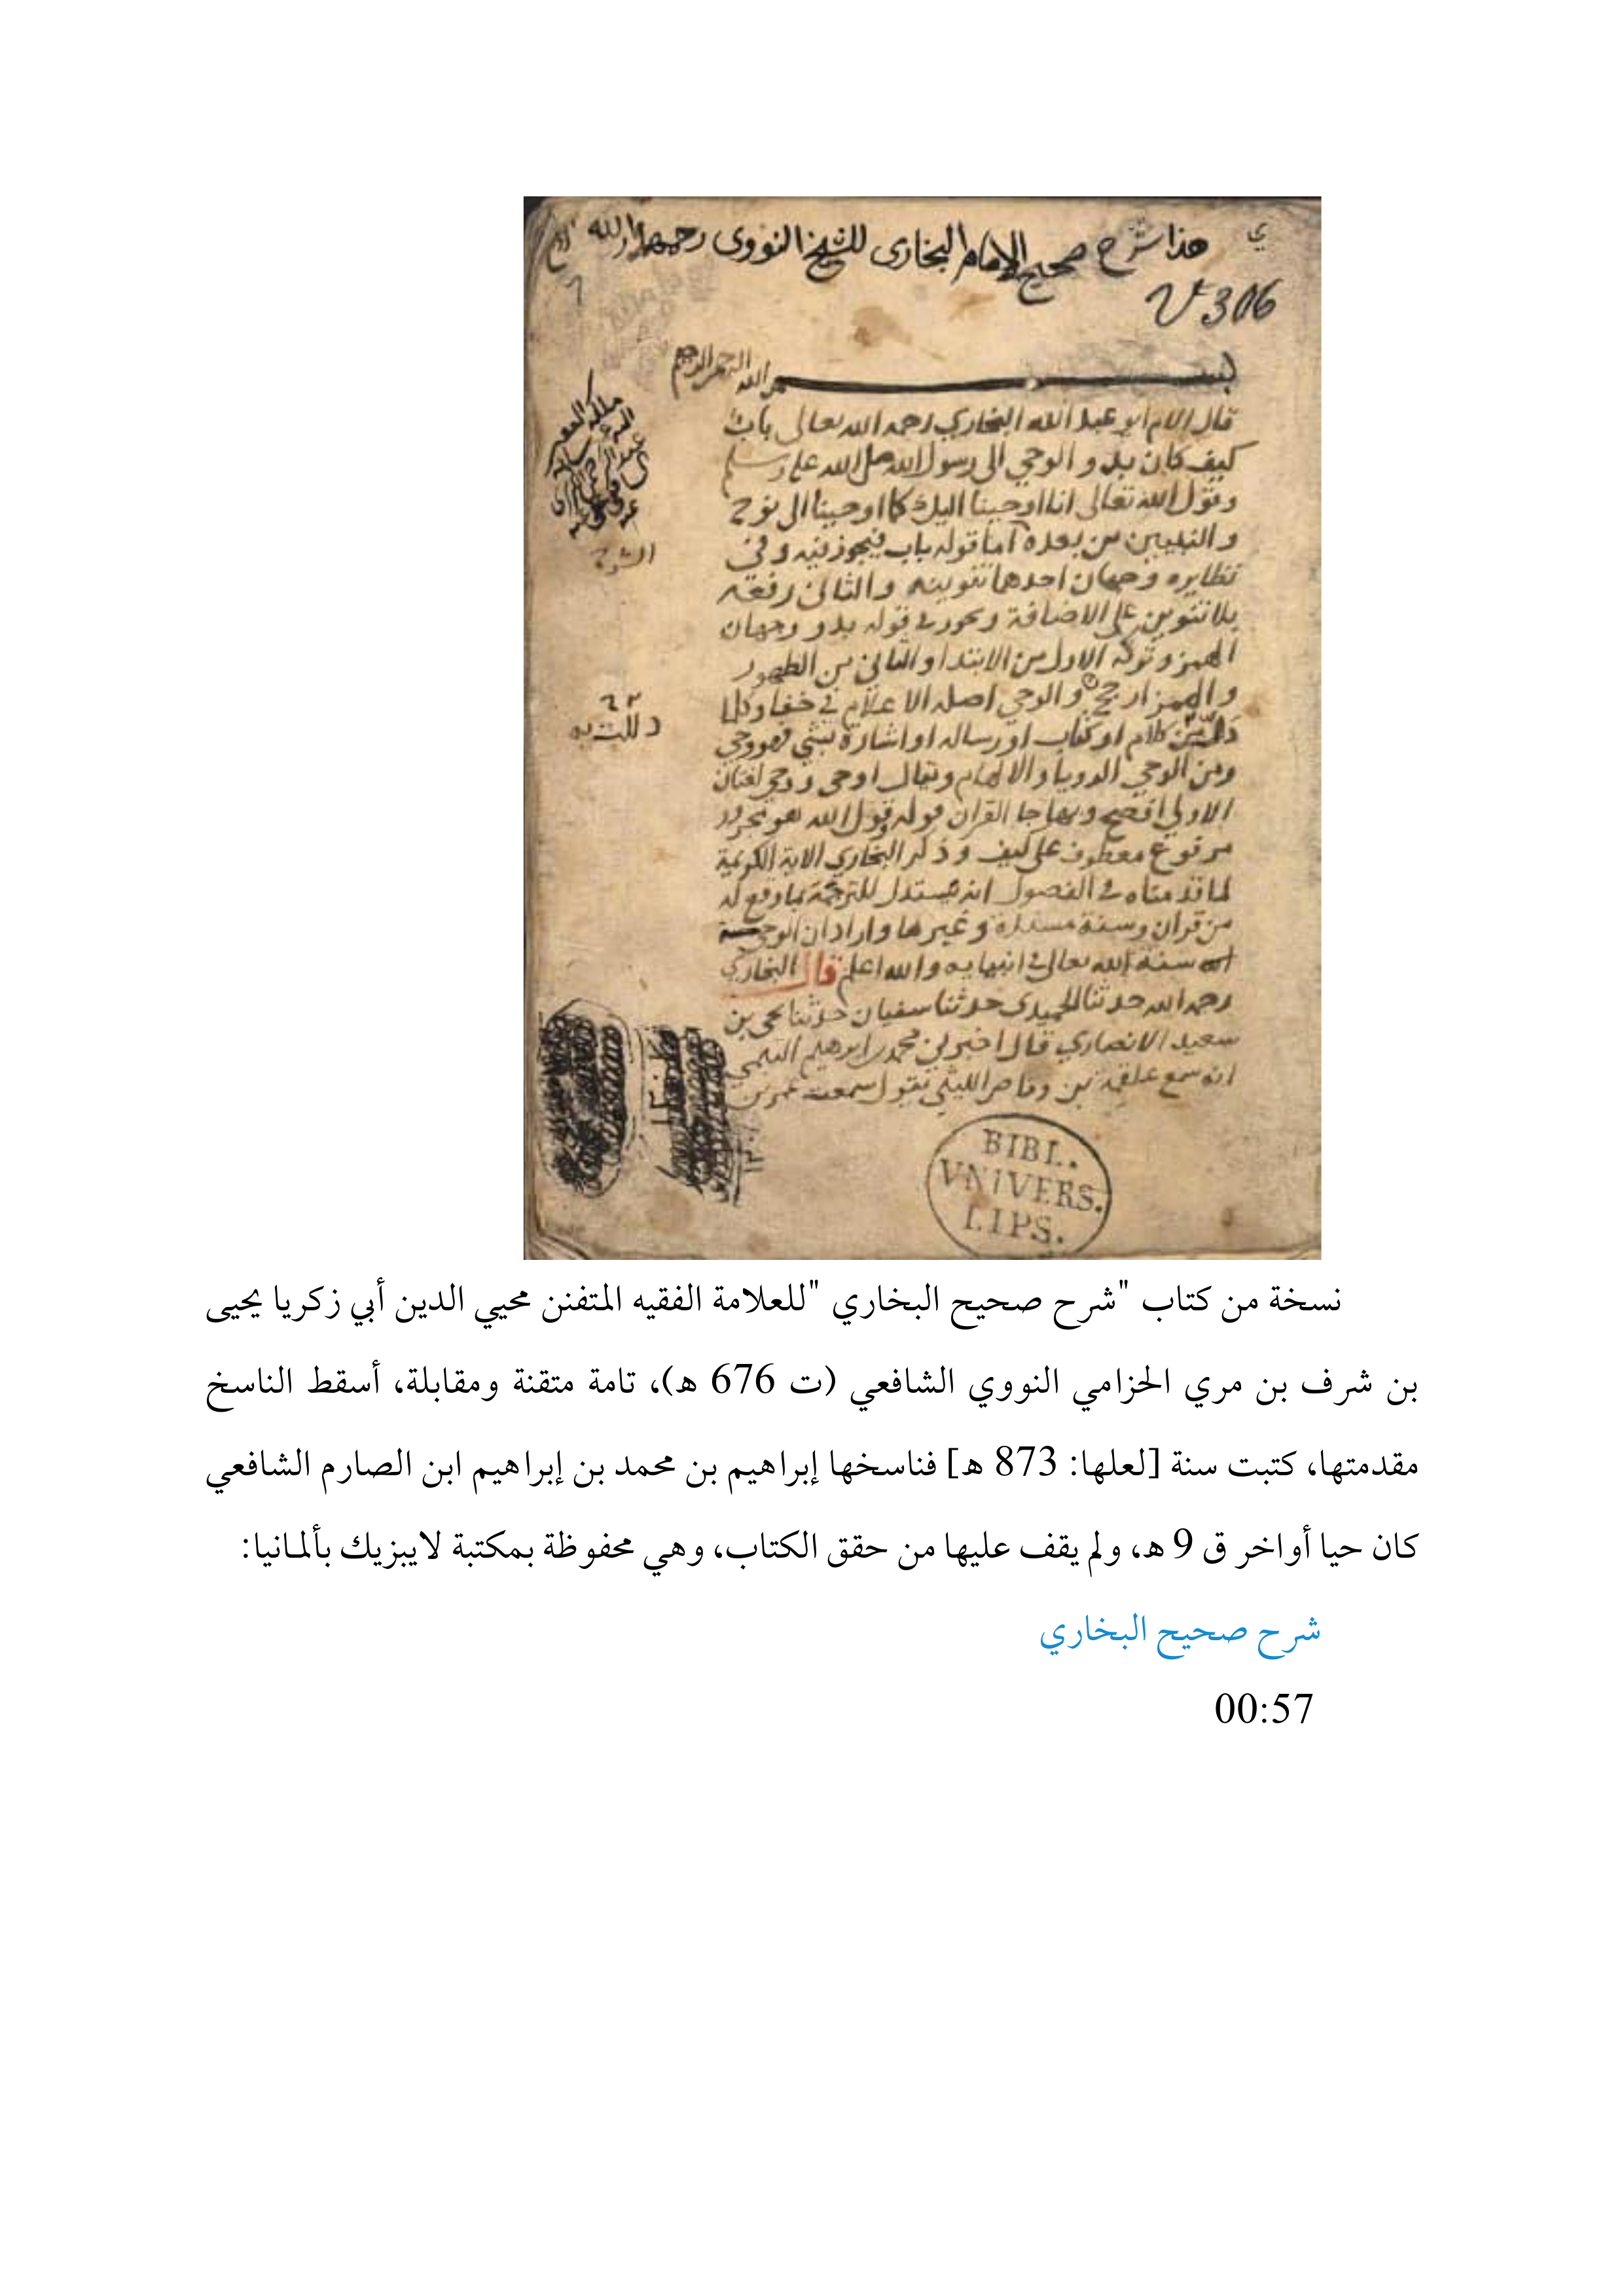 هذا شرح صحيح الإمام البخاري للشيخ النووي رحمهما الله
V 306
بسم الله الرحمن الرحيم
قال الامام ابو عبد الله البخاري رحمه الله تعالى باب
كيف كان بدو الوحي الى رسول الله صلى الله عليه وسلم
وقول الله تعالى انا اوحينا اليك كما اوحينا الى نوح
والنبيين من بعده اما قوله باب فيجوز فيه وفي
نظايره وجهان احدهما تنوينه والثاني رفعه
بلا تنوين على الاضافة ويجوز في قوله بدو وجهان
الهمز وتركه الاول من الابتدا والثاني من الظهور
والهمز ارجح والوحي اصله الاعلام في خفا وكلما
دللت به من كلام او كتاب او رساله او اشارة بشي فهو وحي
ومن الوحي الرويا والالهام ويقال اوحى ووحى لغتان
الاولى افصح وبها جا القران قوله وقول الله هو مجرور
مرفوع معطوف على كيف وذكر البخاري الاية الكريمة
لما قدمناه في الفصول انه يستدل للترجمة بما وقع له
من قران وسنة مسندة وغيرها واراد ان الوحي سنة
الله تعالى في انبيايه والله اعلم قال البخاري
رحمه الله حدثنا الحميدي حدثنا سفيان حدثنا يحيى بن
سعيد الانصاري قال اخبرني محمد بن ابرهيم التيمي
انه سمع علقمة بن وقاص الليثي يقول سمعت عمر بن
الشرح
دللت به
BIBL.
VNIVERS.
LIPS.
نسخة من كتاب "شرح صحيح البخاري "للعلامة الفقيه المتفنن محيي الدين أبي زكريا يحيى
بن شرف بن مري الحزامي النووي الشافعي (ت 676 هـ)، تامة متقنة ومقابلة، أسقط الناسخ
مقدمتها، كتبت سنة [لعلها: 873 هـ] فناسخها إبراهيم بن محمد بن إبراهيم ابن الصارم الشافعي
كان حيا أواخر ق 9 هـ، ولم يقف عليها من حقق الكتاب، وهي محفوظة بمكتبة لايبزيك بألمانيا:
شرح صحيح البخاري
00:57